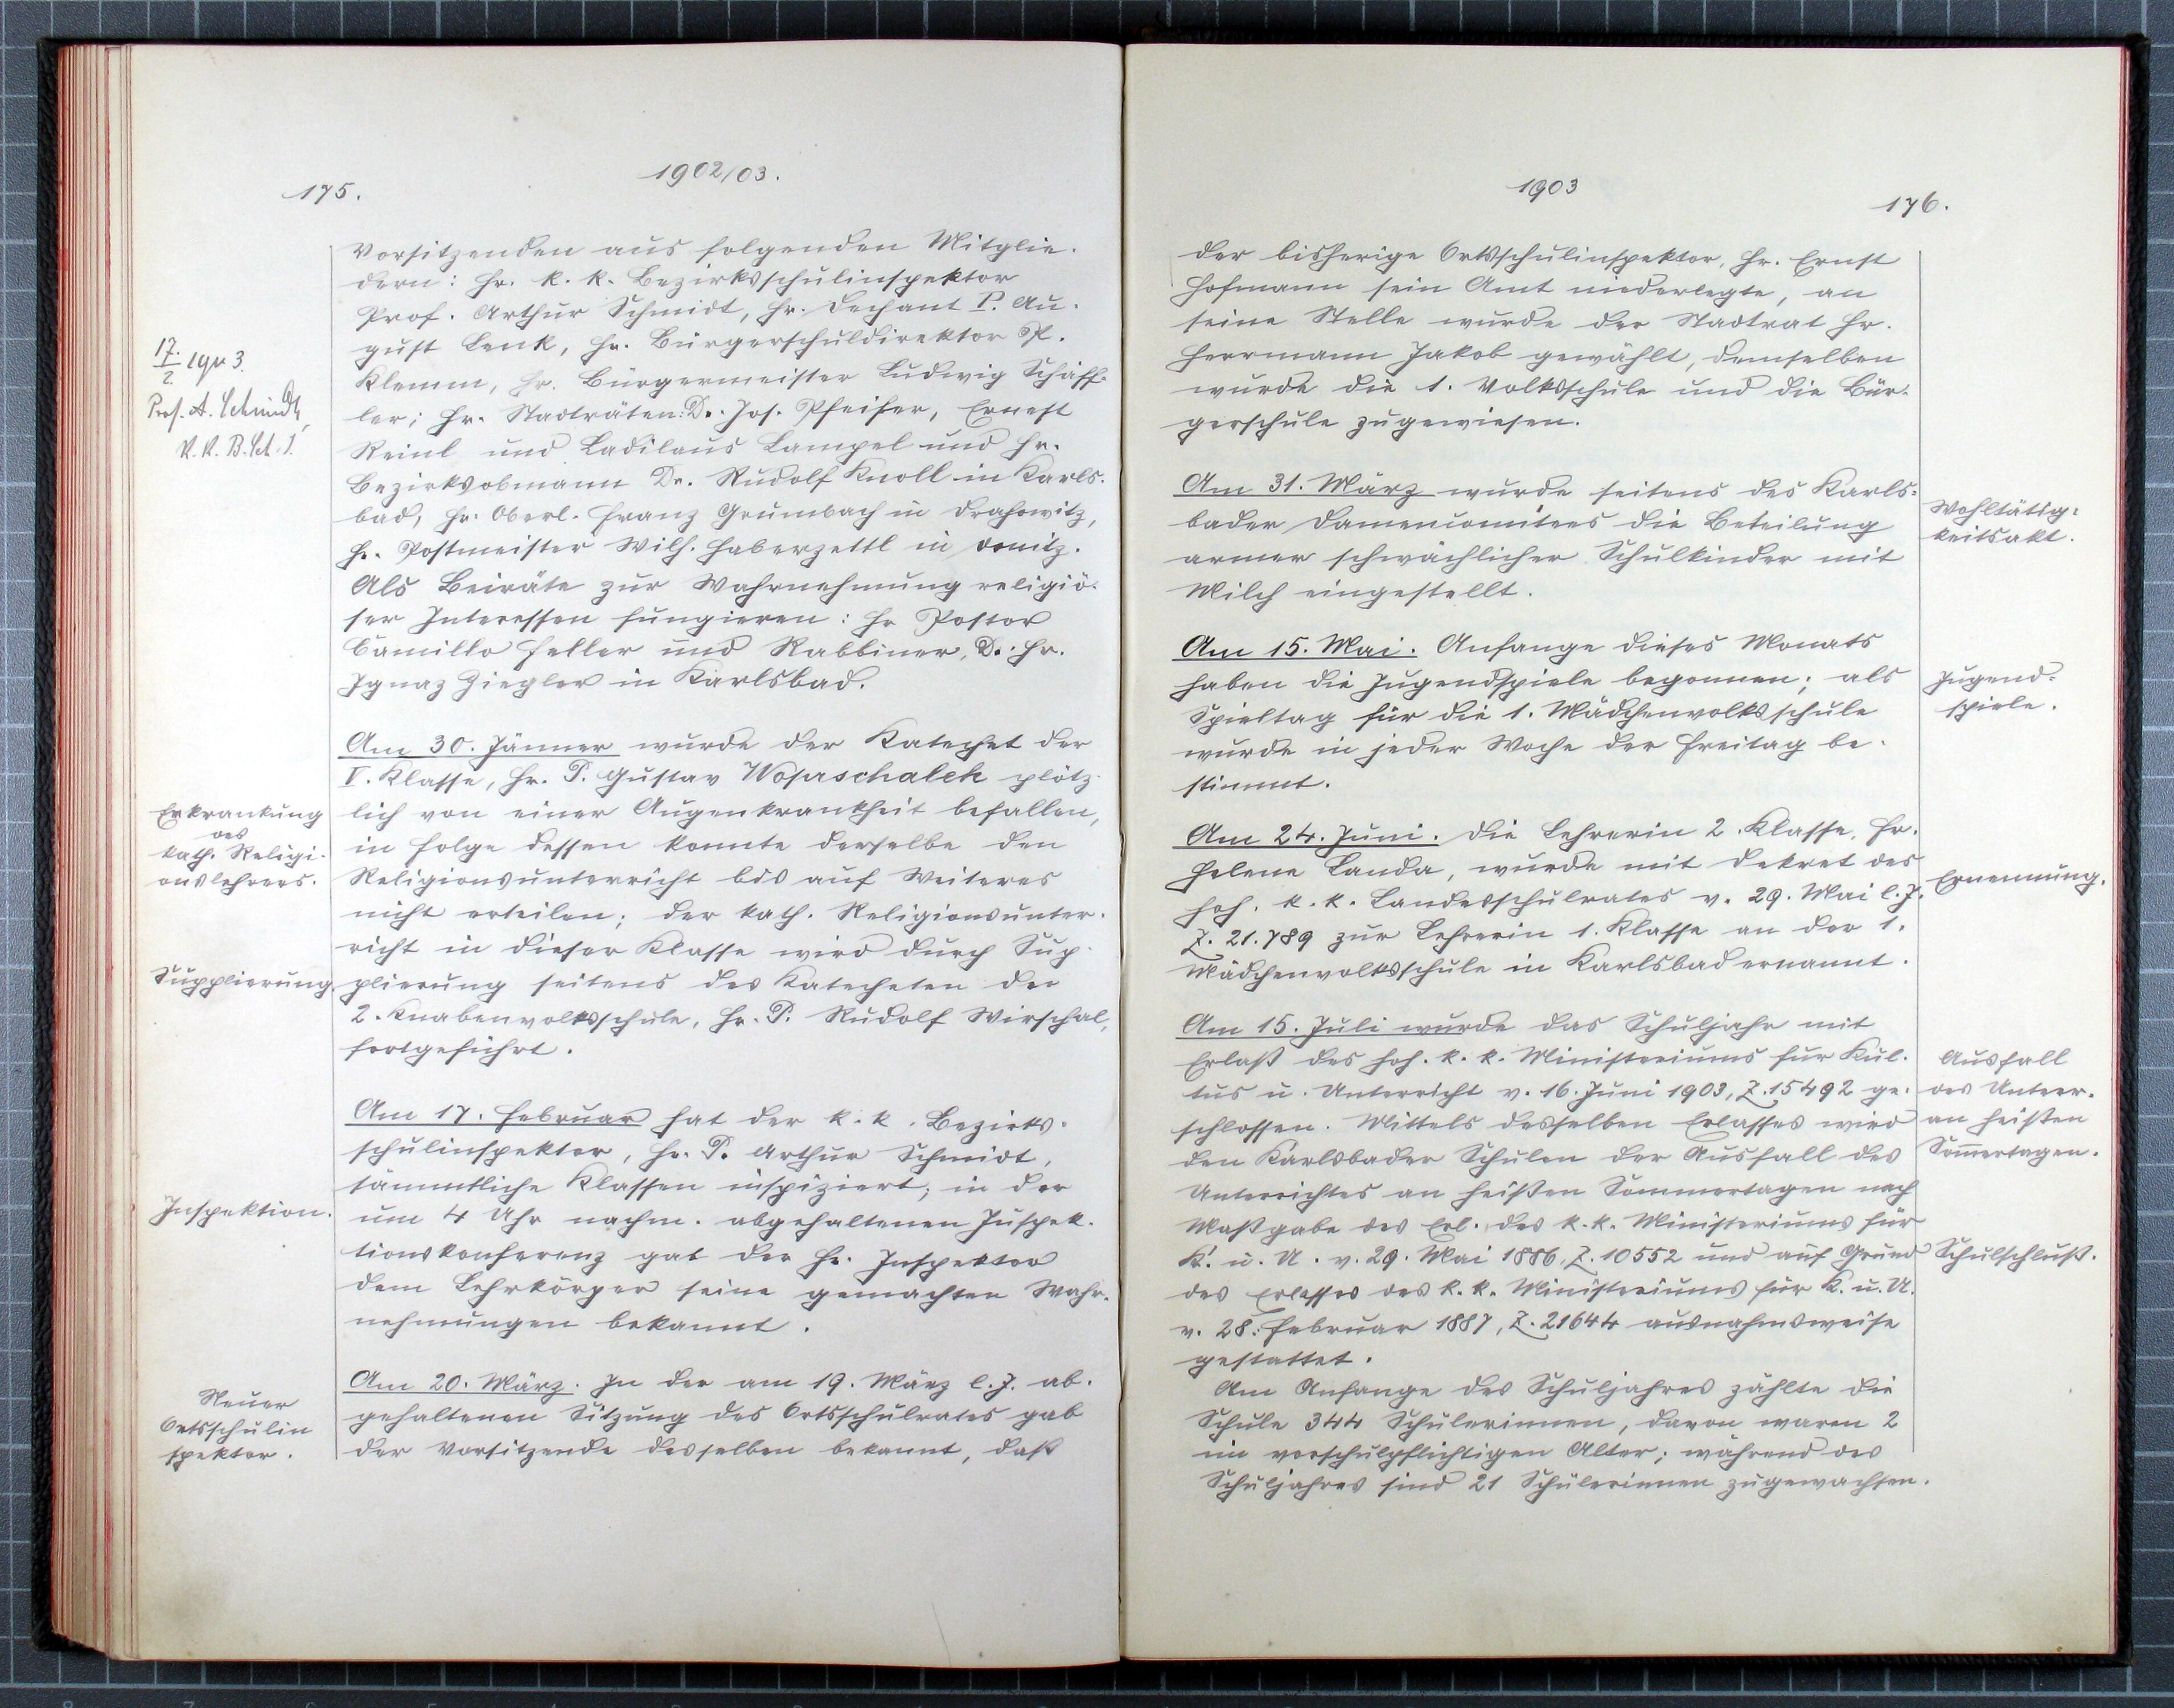 175.
1902/03.
Vorsitzenden aus folgenden Mitglie-
dern: Hr. k. k. Bezirksschulinspektor
Prof. Arthur Schmidt, Hr. Dechant P. Au-
gust Lenk, Hr. Bürgerschuldirektor P.
Klemm, Hr. Bürgermeister Ludwig Schäff-
ler; Hr. Stadträten: Dr. Jos. Pfeifer, Ernest
Reinl und Ladilaus Lampel und Hr.
Bezirksobmann Dr. Rudolf Knoll in Karls-
bad, Hr. Oberl. Franz Grumbach in Drahowitz,
Hr. Postmeister Wilh. Haberzettl in Donitz.
Als Beiräte zur Wahrnehmung religiö-
ser Interessen fungieren: Hr Pastor
Camillo Feller und Rabbiner, Dr. Hr.
Ignaz Ziegler in Karlsbad.
17./2. 1903.
Prof. A. Schmidt,
k. k. B. Sch. I.
Am 30. Jänner wurde der Katechet der
V. Klasse, Hr. P. Gustav Woprschalek plötz-
lich von einer Augenkrankheit befallen,
in folge dessen konnte derselbe den
Religionsunterricht bis auf Weiteres
nicht erteilen; der kath. Religionsunter-
richt in dieser Klasse wird durch Sup-
plierung seitens des Katecheten der
2. Knabenvolksschule, Hr. P. Rudolf Wirschal,
fortgeführt.
Erkrankung
des
kath. Religi-
onslehrers.
Supplierung.
Am 17. Februar hat der k. k. Bezirks-
schulinspektor, Hr. P. Arthur Schmidt,
sämmtliche Klassen inspiziert; in der
um 4 Uhr nachm. abgehaltenen Inspek-
tionskonferenz gab der Hr. Inspektor
dem Lehrkörper seine gemachten Wahr-
nehmungen bekannt.
Inspektion.
Am 20. März. In der am 19. März l. J. ab-
gehaltenen Sitzung des Ortsschulrates gab
der Vorsitzende desselben bekannt, daß
Neuer
Ortsschulin
spektor.
1903
176.
der bisherige Ortsschulinspektor, Hr. Ernst
Hofmann sein Amt niederlegte, an
seine Stelle wurde der Stadtrat Hr.
Herrmann Jakob gewählt, demselben
wurde die 1. Volksschule und die Bür-
gerschule zugewiesen.
Am 31. März wurde seitens des Karls-
bader Damencomitees die Beteilung
armer schwächlicher Schulkinder mit
Milch eingestellt.
Wohltätig-
keitsakt.
Am 15. Mai. Anfange dieses Monats
haben die Jugendspiele begonnen; als
Spieltag für die 1. Mädchenvolksschule
wurde in jeder Woche der Freitag be-
stimmt.
Jugend-
spiele.
Am 24. Juni. Die Lehrerin 2. Klasse, Fr.
Helene Landa, wurde mit Dekret des
hoh. k. k. Landesschulrates v. 29. Mai l. J.
Z. 21.789 zur Lehrerin 1. Klasse an der 1.
Mädchenvolksschule in Karlsbad ernannt.
Ernennung.
Am 15. Juli wurde das Schuljahr mit
Erlaß des hoh. k. k. Ministeriums für Kul-
tus u. Unterricht v. 16. Juni 1903, Z. 15492 ge-
schlossen. Mittels desselben Erlasses wird
den Karlsbader Schulen der Ausfall des
Unterrichtes an heißen Sommertagen nach
Maßgabe des Erl. des k. k. Ministeriums für
K. u. U. v. 29. Mai 1886, Z. 10552 und auf Grund
des Erlasses des k. k. Ministeriums für K. u. U.
v. 28. Februar 1887, Z. 21644 ausnahmsweise
gestattet.
Ausfall
des Unterr.
an heißen
Som̄ertagen.
Schulschluß.
Am Anfange des Schuljahres zählte die
Schule 344 Schülerinnen, davon waren 2
im vorschulpflichtigen Alter; während des
Schuljahres sind 21 Schülerinnen zugewachsen.